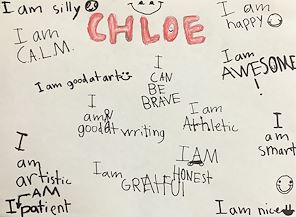 I am silly
CHLOE
I am
happy
I am
C.A.L.M.
I am good at art
I
CAN
BE
BRAVE
I am
AWESOME
!
I
am
good at writing
I am
Athletic
I
am
artistic
I am
GRATFUl
I AM
HONEST
I
am
smart
AM
I patient
I am nice